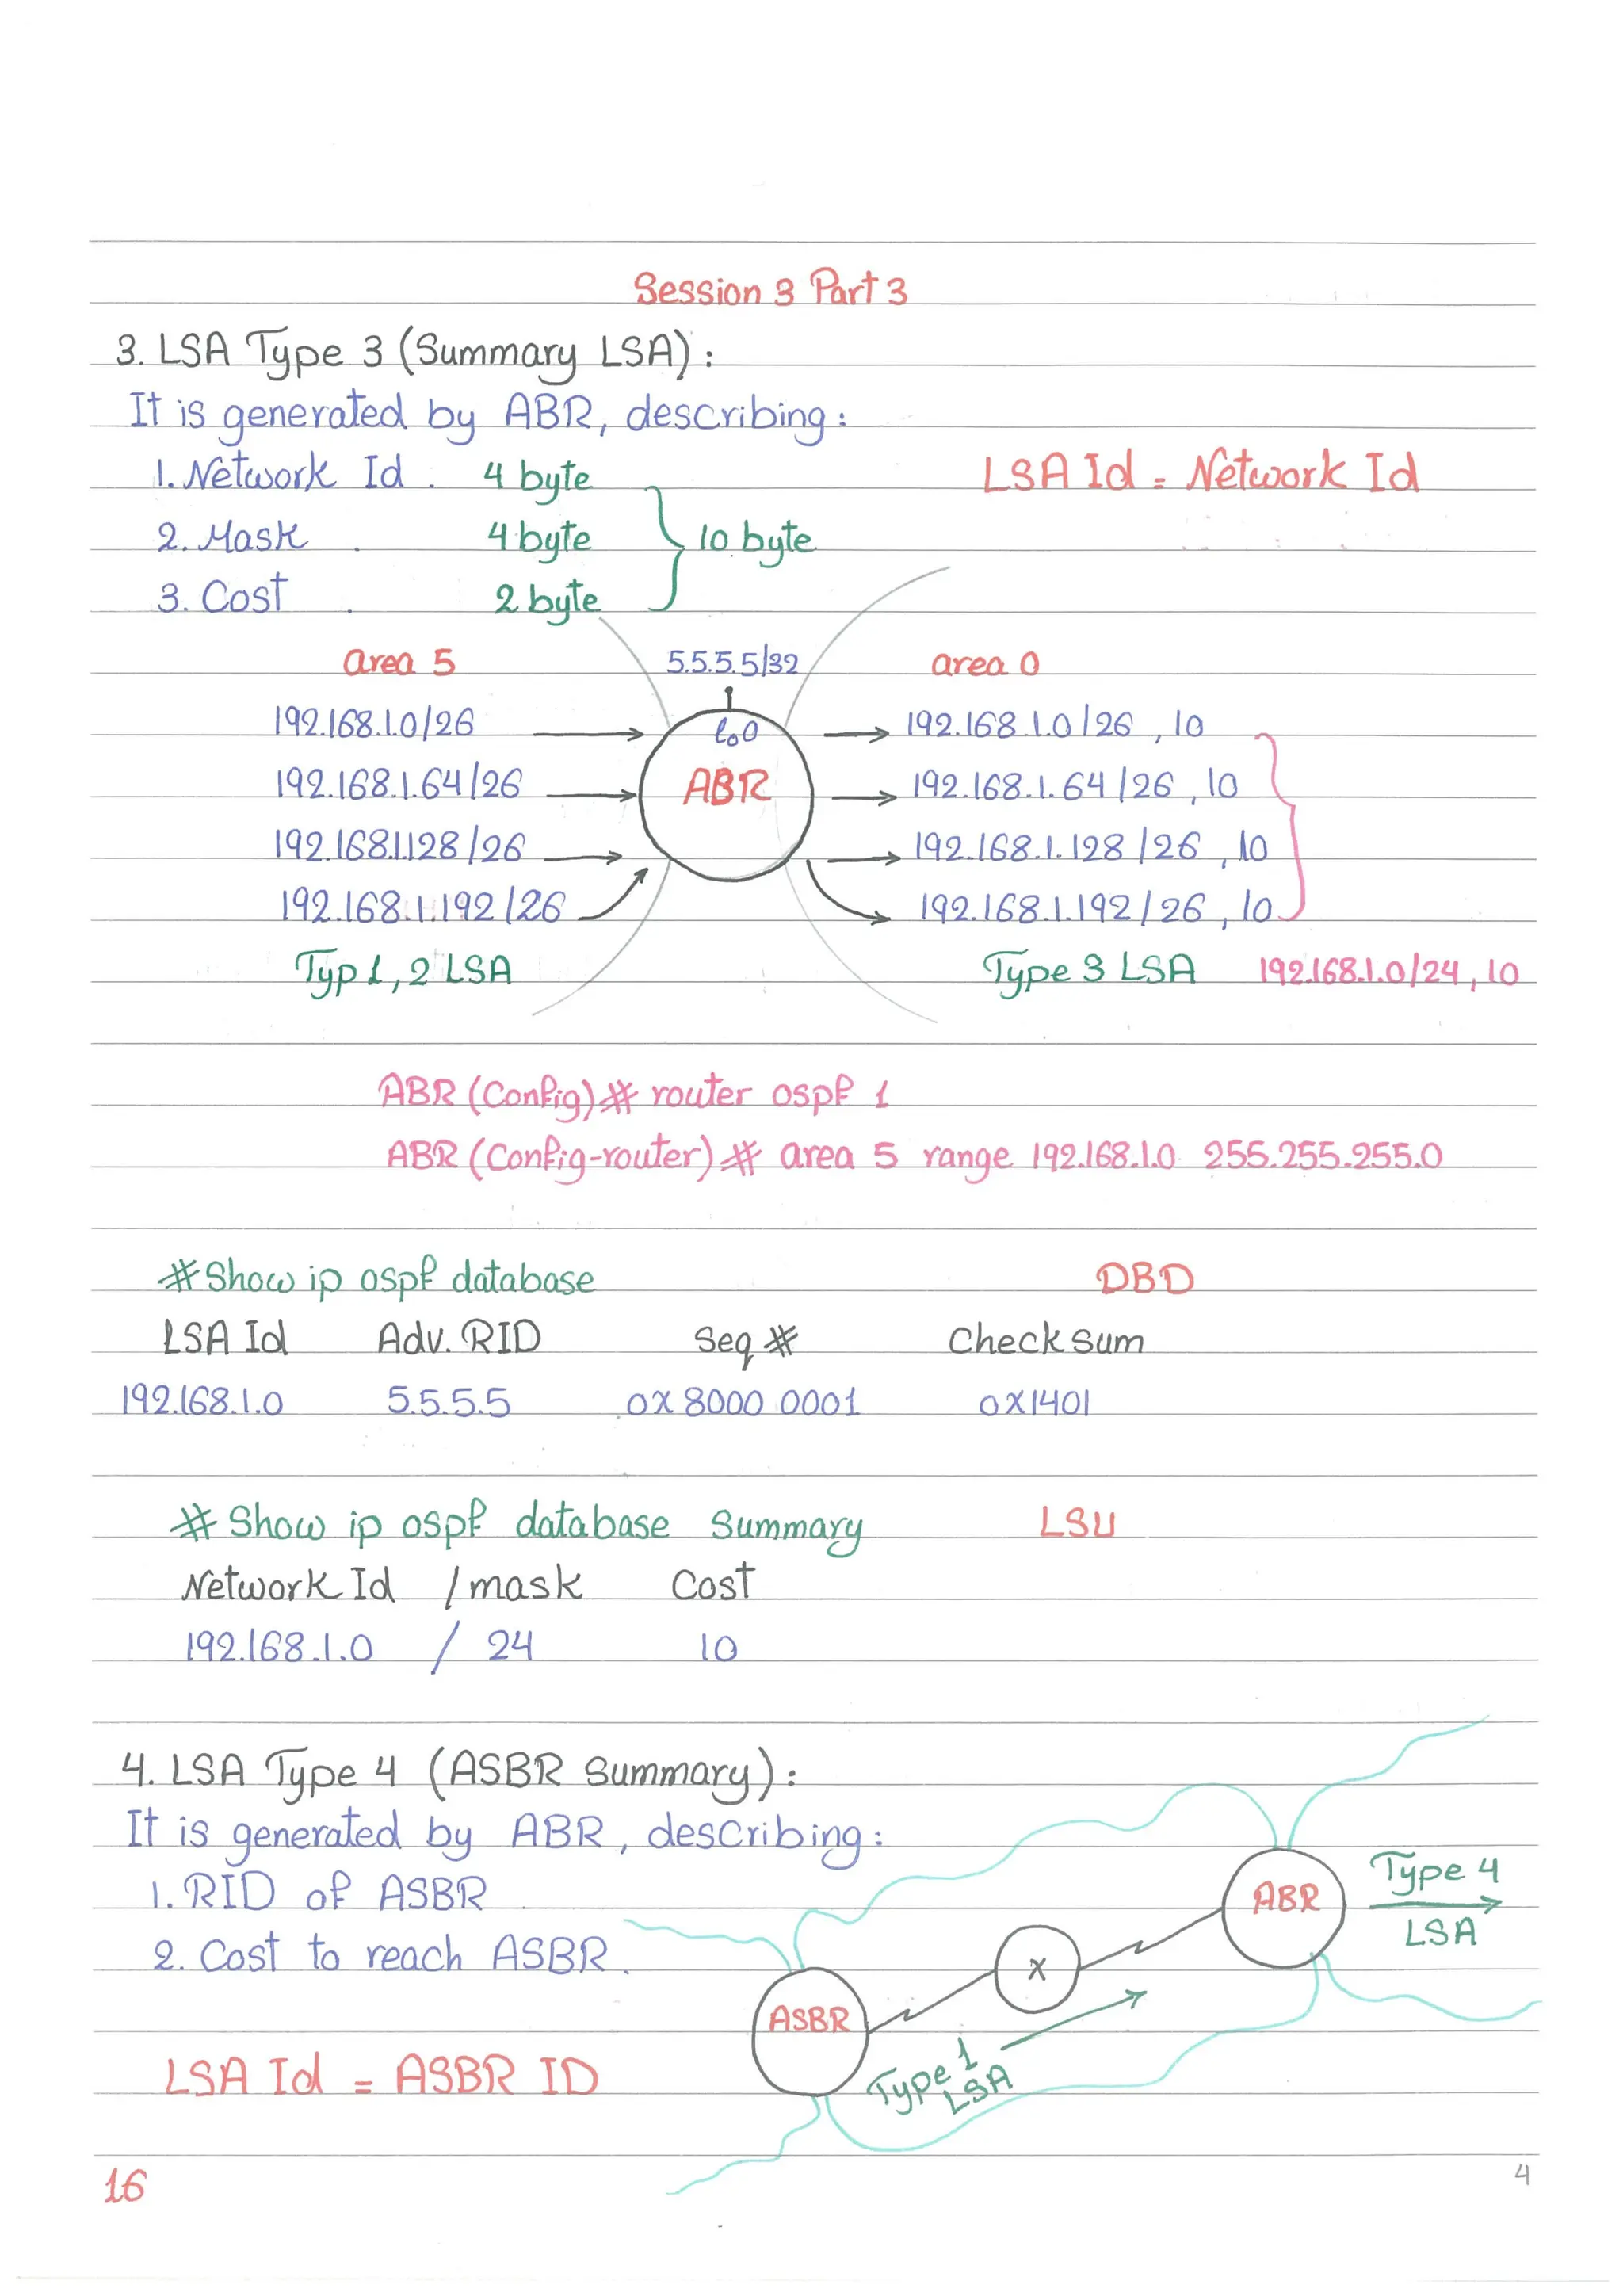 Session 3 Part 3
3. LSA Type 3 (Summary LSA):
It is generated by ABR, describing:
1. Network Id . 4 byte
LSA Id = Network Id
2. Mask . 4 byte
10 byte
3. Cost . 2 byte
area 5
5.5.5.5/32
area 0
192.168.1.0/26
lo0
192.168.1.0/26 , 10
192.168.1.64/26
ABR
192.168.1.64/26 , 10
192.168.1.128/26
192.168.1.128/26 , 10
192.168.1.192/26
192.168.1.192/26 , 10
Typ 1,2 LSA
Type 3 LSA
192.168.1.0/24 , 10
ABR (Config)# router ospf 1
ABR (Config-router)# area 5 range 192.168.1.0 255.255.255.0
# Show ip ospf database
DBD
LSA Id Adv. RID Seq # Check sum
192.168.1.0 5.5.5.5 0x 8000 0001 0x1401
# Show ip ospf database Summary
LSU
Network Id / mask Cost
192.168.1.0 / 24 10
4. LSA Type 4 (ASBR Summary):
It is generated by ABR, describing:
1. RID of ASBR
2. Cost to reach ASBR.
ABR
Type 4
LSA
X
ASBR
Type 1
LSA
LSA Id = ASBR ID
16
4